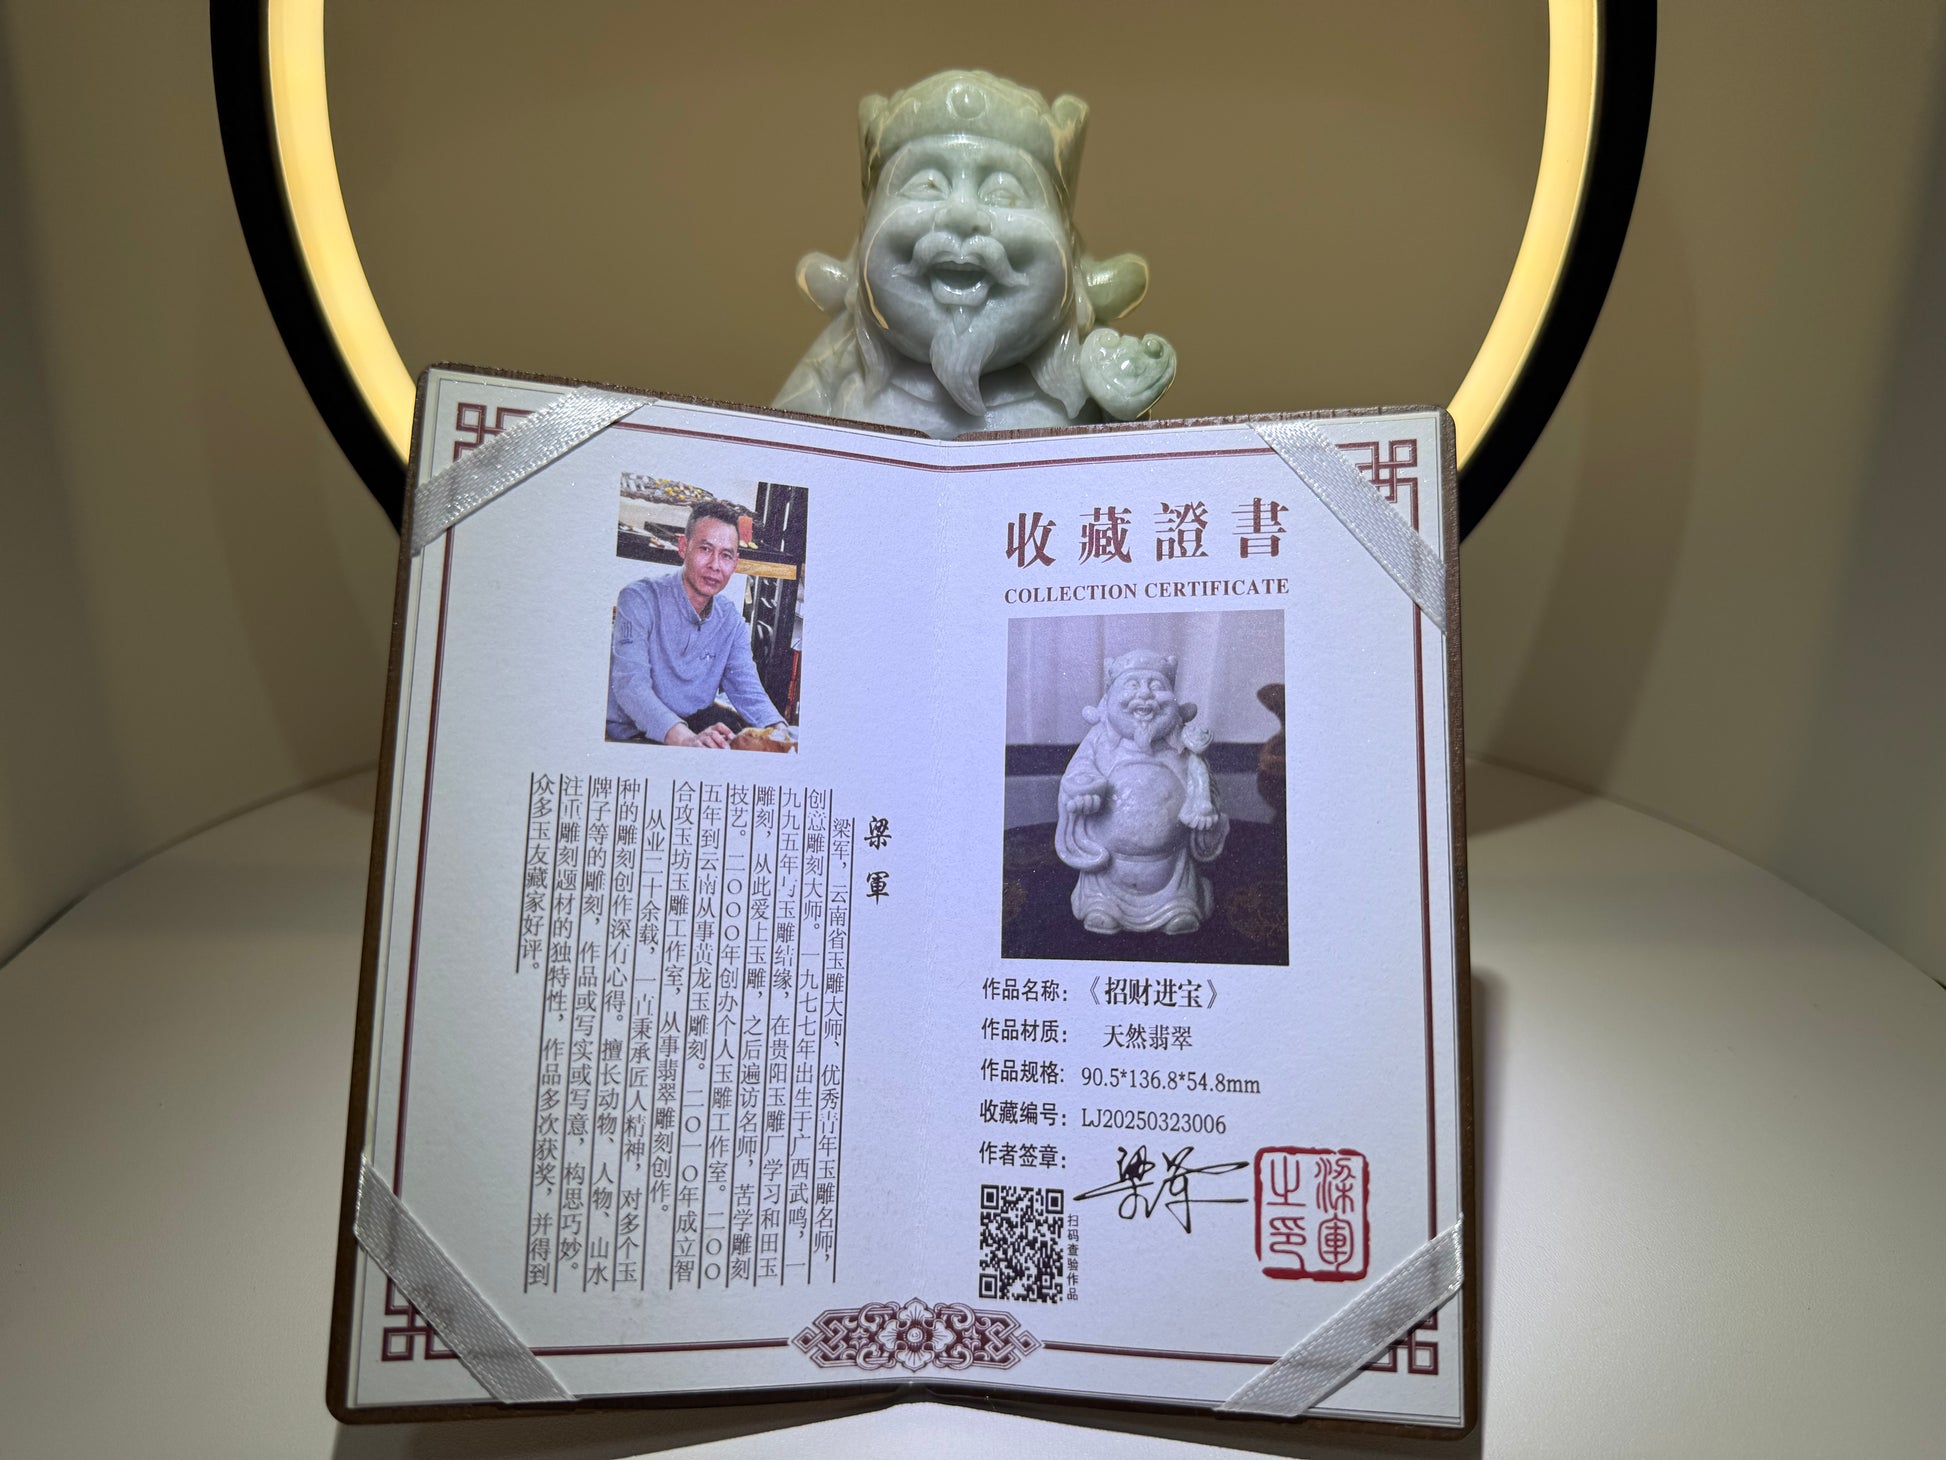 梁軍
梁军，云南省玉雕大师、优秀青年玉雕名师，
创意雕刻大师。一九七七年出生于广西武鸣，一
九九五年与玉雕结缘，在贵阳玉雕厂学习和田玉
雕刻，从此爱上玉雕，之后遍访名师，苦学雕刻
技艺。二〇〇〇年创办个人玉雕工作室。二〇〇
五年到云南从事黄龙玉雕刻。二〇一〇年成立智
合攻玉坊玉雕工作室，从事翡翠雕刻创作。
从业二十余载，一直秉承匠人精神，对多个玉
种的雕刻创作深有心得。擅长动物、人物、山水
牌子等的雕刻，作品或写实或写意，构思巧妙。
注重雕刻题材的独特性，作品多次获奖，并得到
众多玉友藏家好评。
收藏證書
COLLECTION CERTIFICATE
作品名称：《招财进宝》
作品材质：天然翡翠
作品规格：90.5*136.8*54.8mm
收藏编号：LJ20250323006
作者签章：梁军
梁軍之印
扫码查验作品